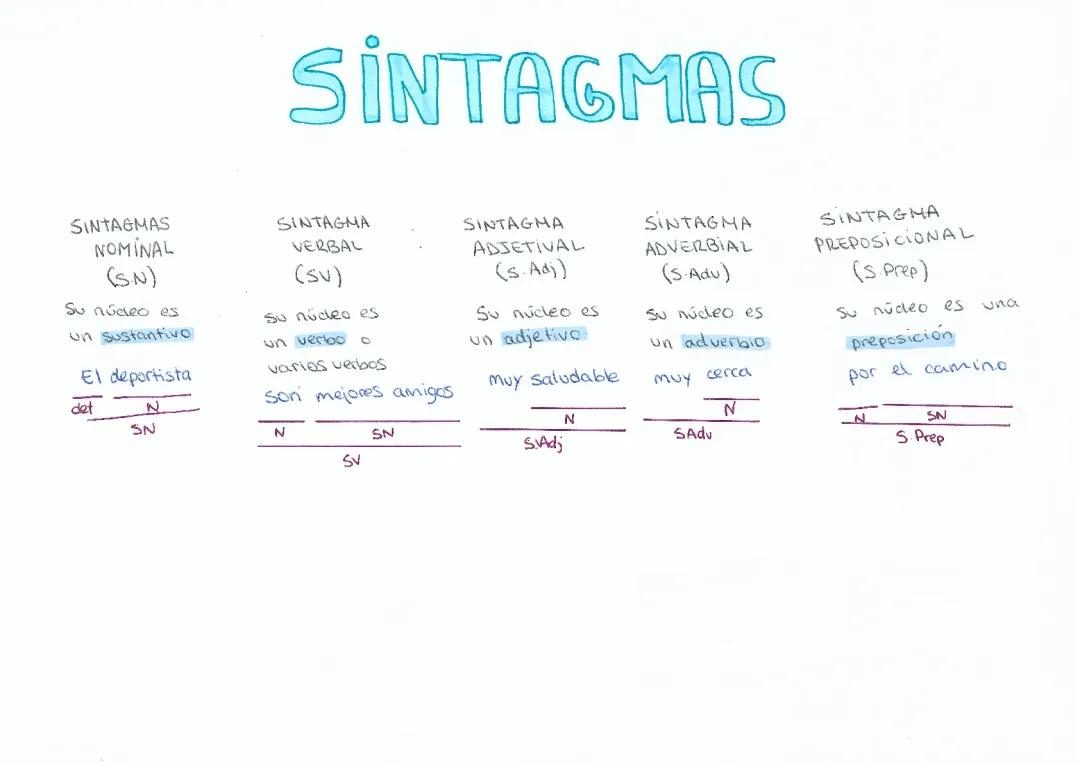 SINTAGMAS
SINTAGMAS
NOMINAL
(SN)
Su núcleo es
un sustantivo
El deportista
det N
SN
SINTAGMA
VERBAL
(SV)
Su núcleo es
un verbo o
varios verbos
son mejores amigos
N SN
SV
SINTAGMA
ADJETIVAL
(S.Adj)
Su núcleo es
un adjetivo
muy saludable
N
S.Adj
SINTAGMA
ADVERBIAL
(S.Adv)
Su núcleo es
un adverbio
muy cerca
N
SAdv
SINTAGMA
PREPOSICIONAL
(S.Prep)
Su núcleo es una
preposición
por el camino
N SN
S.Prep